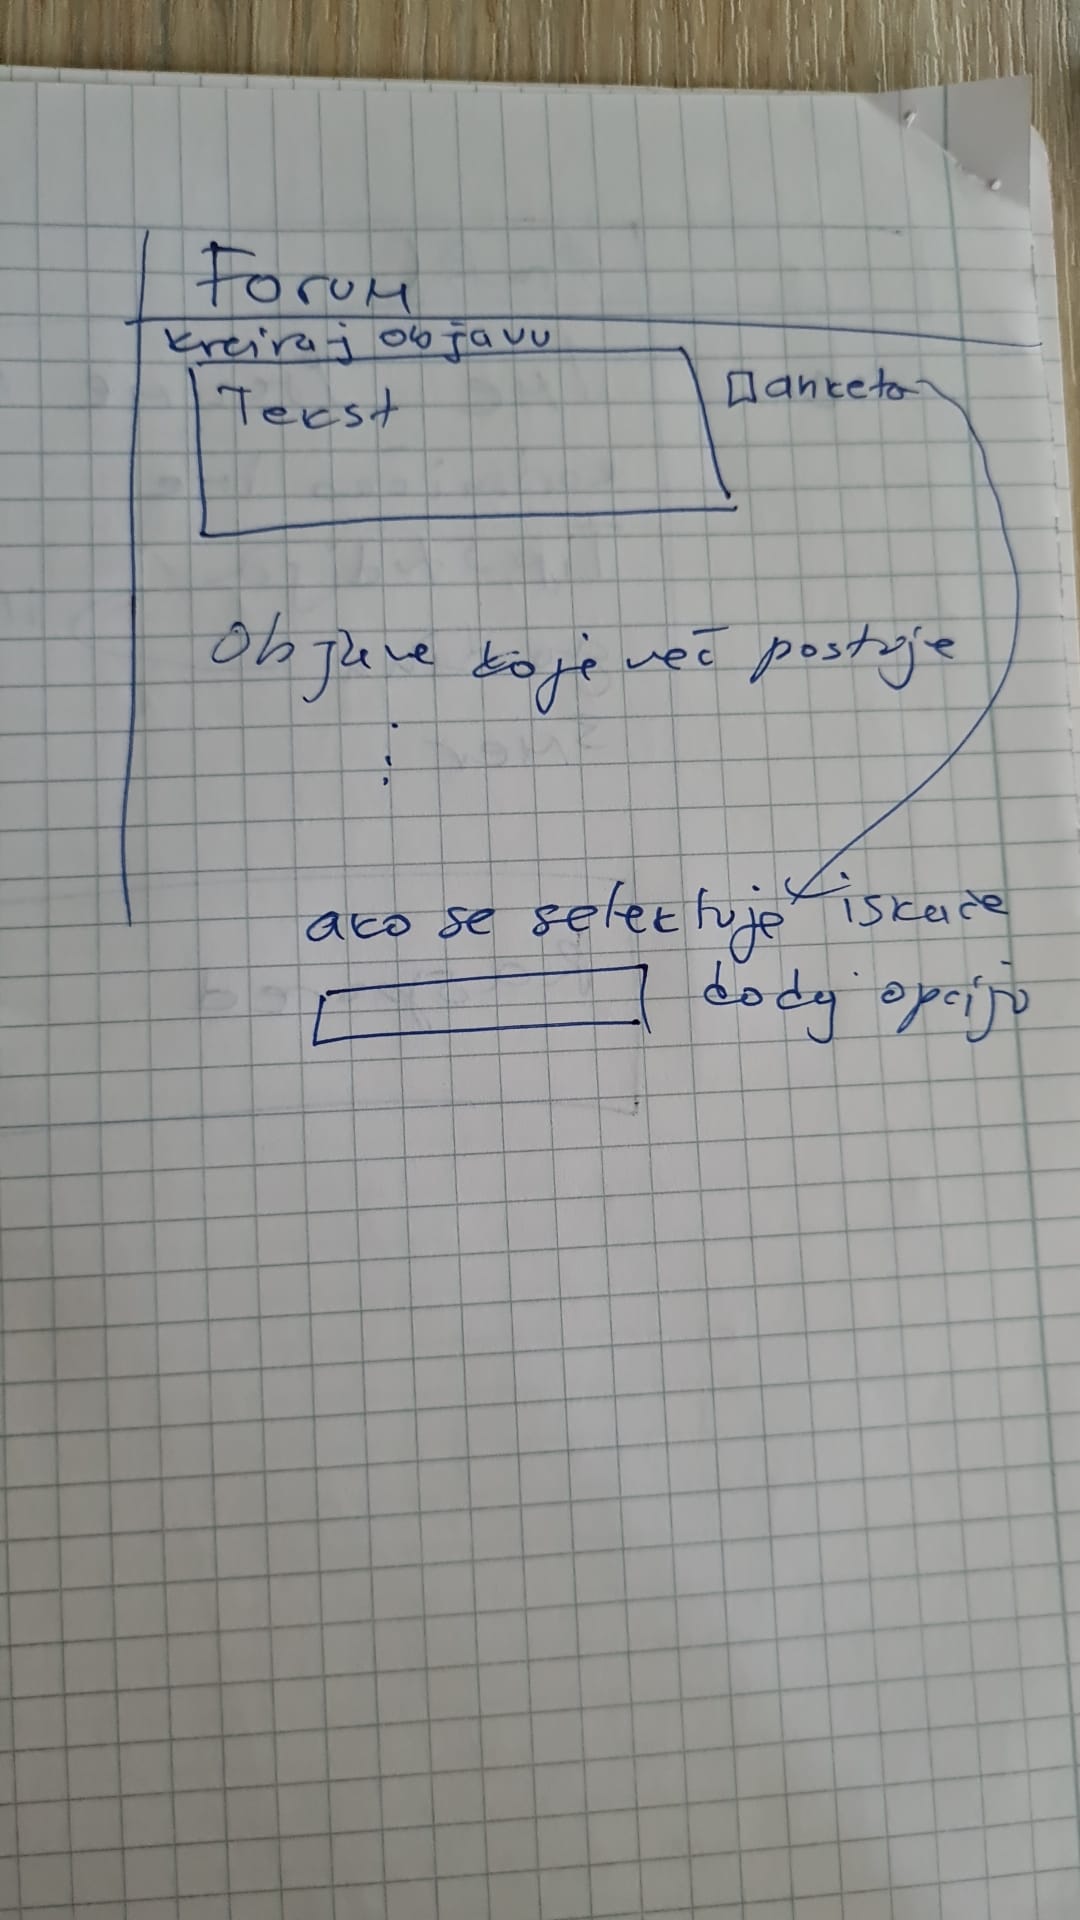 Forum
kreiraj objavu
Tekst
anketa
Objave koje već postoje
ako se selektuje iskače
dodaj opciju